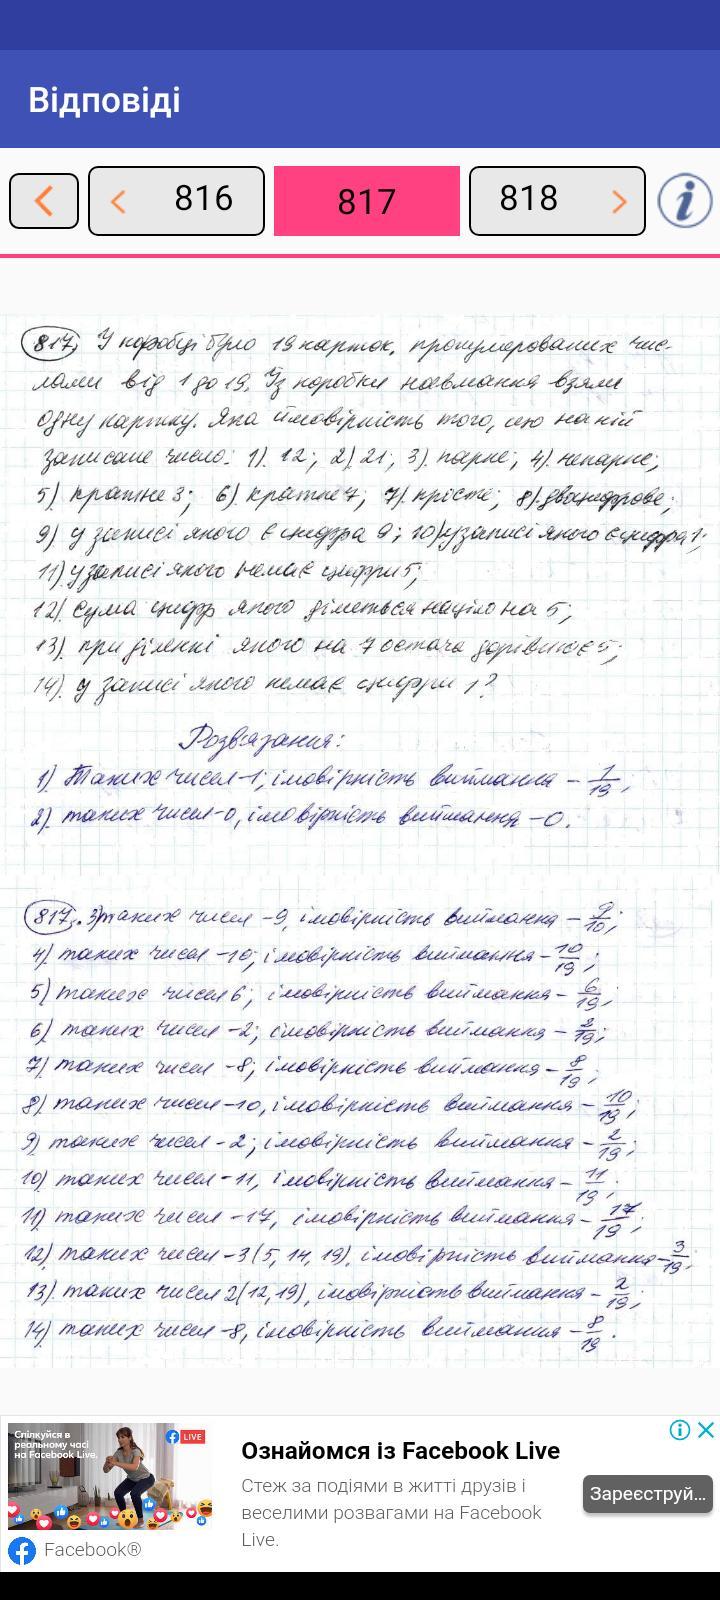 Відповіді
816
817
818
817. У коробці було 19 карток, пронумерованих чис-
лами від 1 до 19. Із коробки навмання взяли
одну картку. Яка ймовірність того, що на ній
записане число: 1). 12; 2) 21; 3). парне; 4). непарне;
5) кратне 3; 6). кратне 7; 7). просте; 8). двоцифрове;
9) у записі якого є цифра 9; 10) у записі якого є цифра 1;
11) у записі якого немає цифри 5;
12) сума цифр якого ділиться націло на 5;
13). при діленні якого на 7 остача дорівнює 5;
14). у записі якого немає цифри 1?
Розв'язання:
1). Таких чисел -1; імовірність виймання - 1/19;
2). таких чисел -0, імовірність виймання -0.
817. 3) таких чисел -9, імовірність виймання - 9/10;
4) таких чисел -10; імовірність виймання - 10/19;
5) таких чисел 6; імовірність виймання - 6/19;
6) таких чисел -2; імовірність виймання - 2/19;
7) таких чисел -8; імовірність виймання - 8/19;
8) таких чисел -10, імовірність виймання - 10/19;
9) таких чисел - 2; імовірність виймання - 2/19;
10) таких чисел -11, імовірність виймання - 11/19;
11) таких чисел -17, імовірність виймання - 17/19;
12) таких чисел -3 (5, 14, 19), імовірність виймання - 3/19;
13). таких чисел 2 (12, 19), імовірність виймання - 2/19;
14) таких чисел -8, імовірність виймання - 8/19.
Спілкуйся в
реальному часі
на Facebook Live.
LIVE
Facebook®
Ознайомся із Facebook Live
Стеж за подіями в житті друзів і
веселими розвагами на Facebook
Live.
Зареєструй...